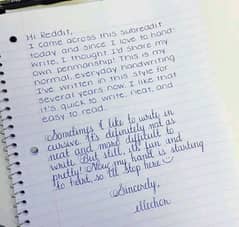 Hi Reddit,
I came across this subreddit
today and since I love to hand-
write, I thought I'd share my
own penmanship! This is my
normal, everyday handwriting
I've written in this style for
several years now. I like that
it's quick to write, neat, and
easy to read.
Sometimes I like to write in
cursive. It's definitely not as
neat and more difficult to
write. But still, it's fun and
pretty! Now my hand is starting
to hurt, so I'll stop here
Sincerely,